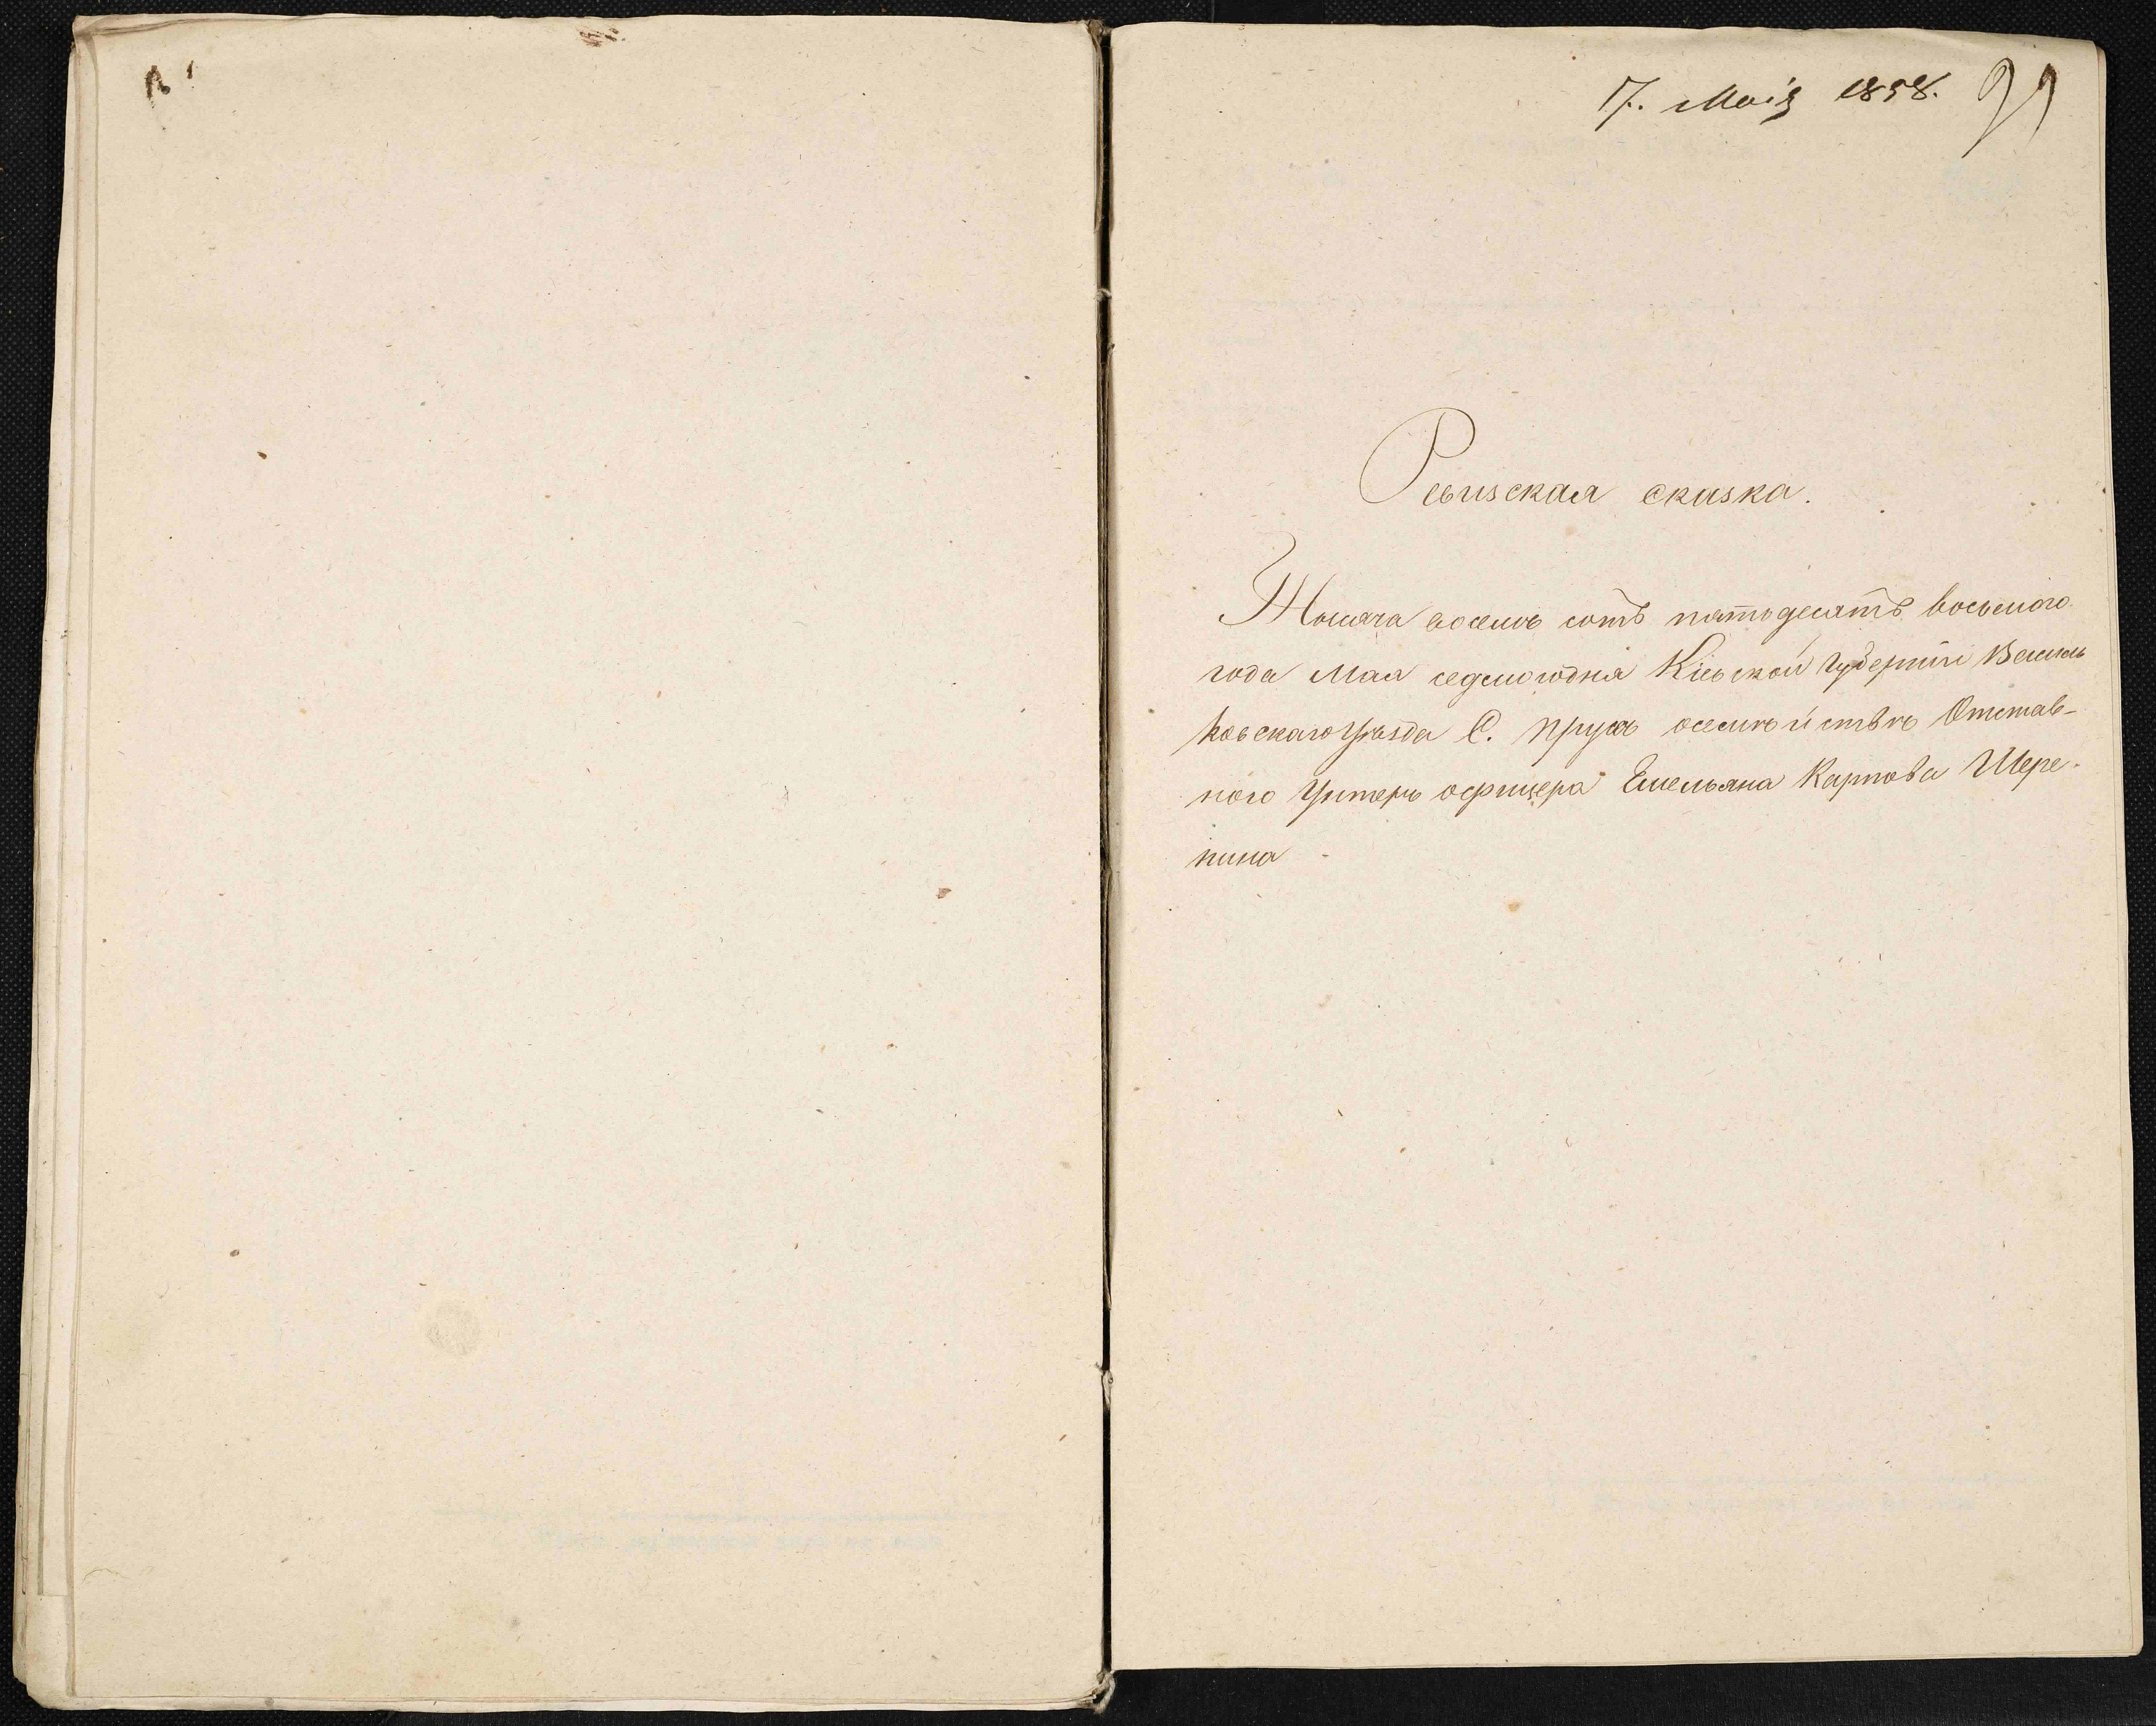 17. Маія 1858.
Ревизская сказка.
Тысяча восемь сотъ пятьдесятъ восьмого
года Мая седмогодня Кіевской Губерніи Василь
ковскаго Уѣзда С. Прусъ осемѣйствѣ Отстав-
ного Унтеръ офицера Емельяна Карпова Шере-
пина